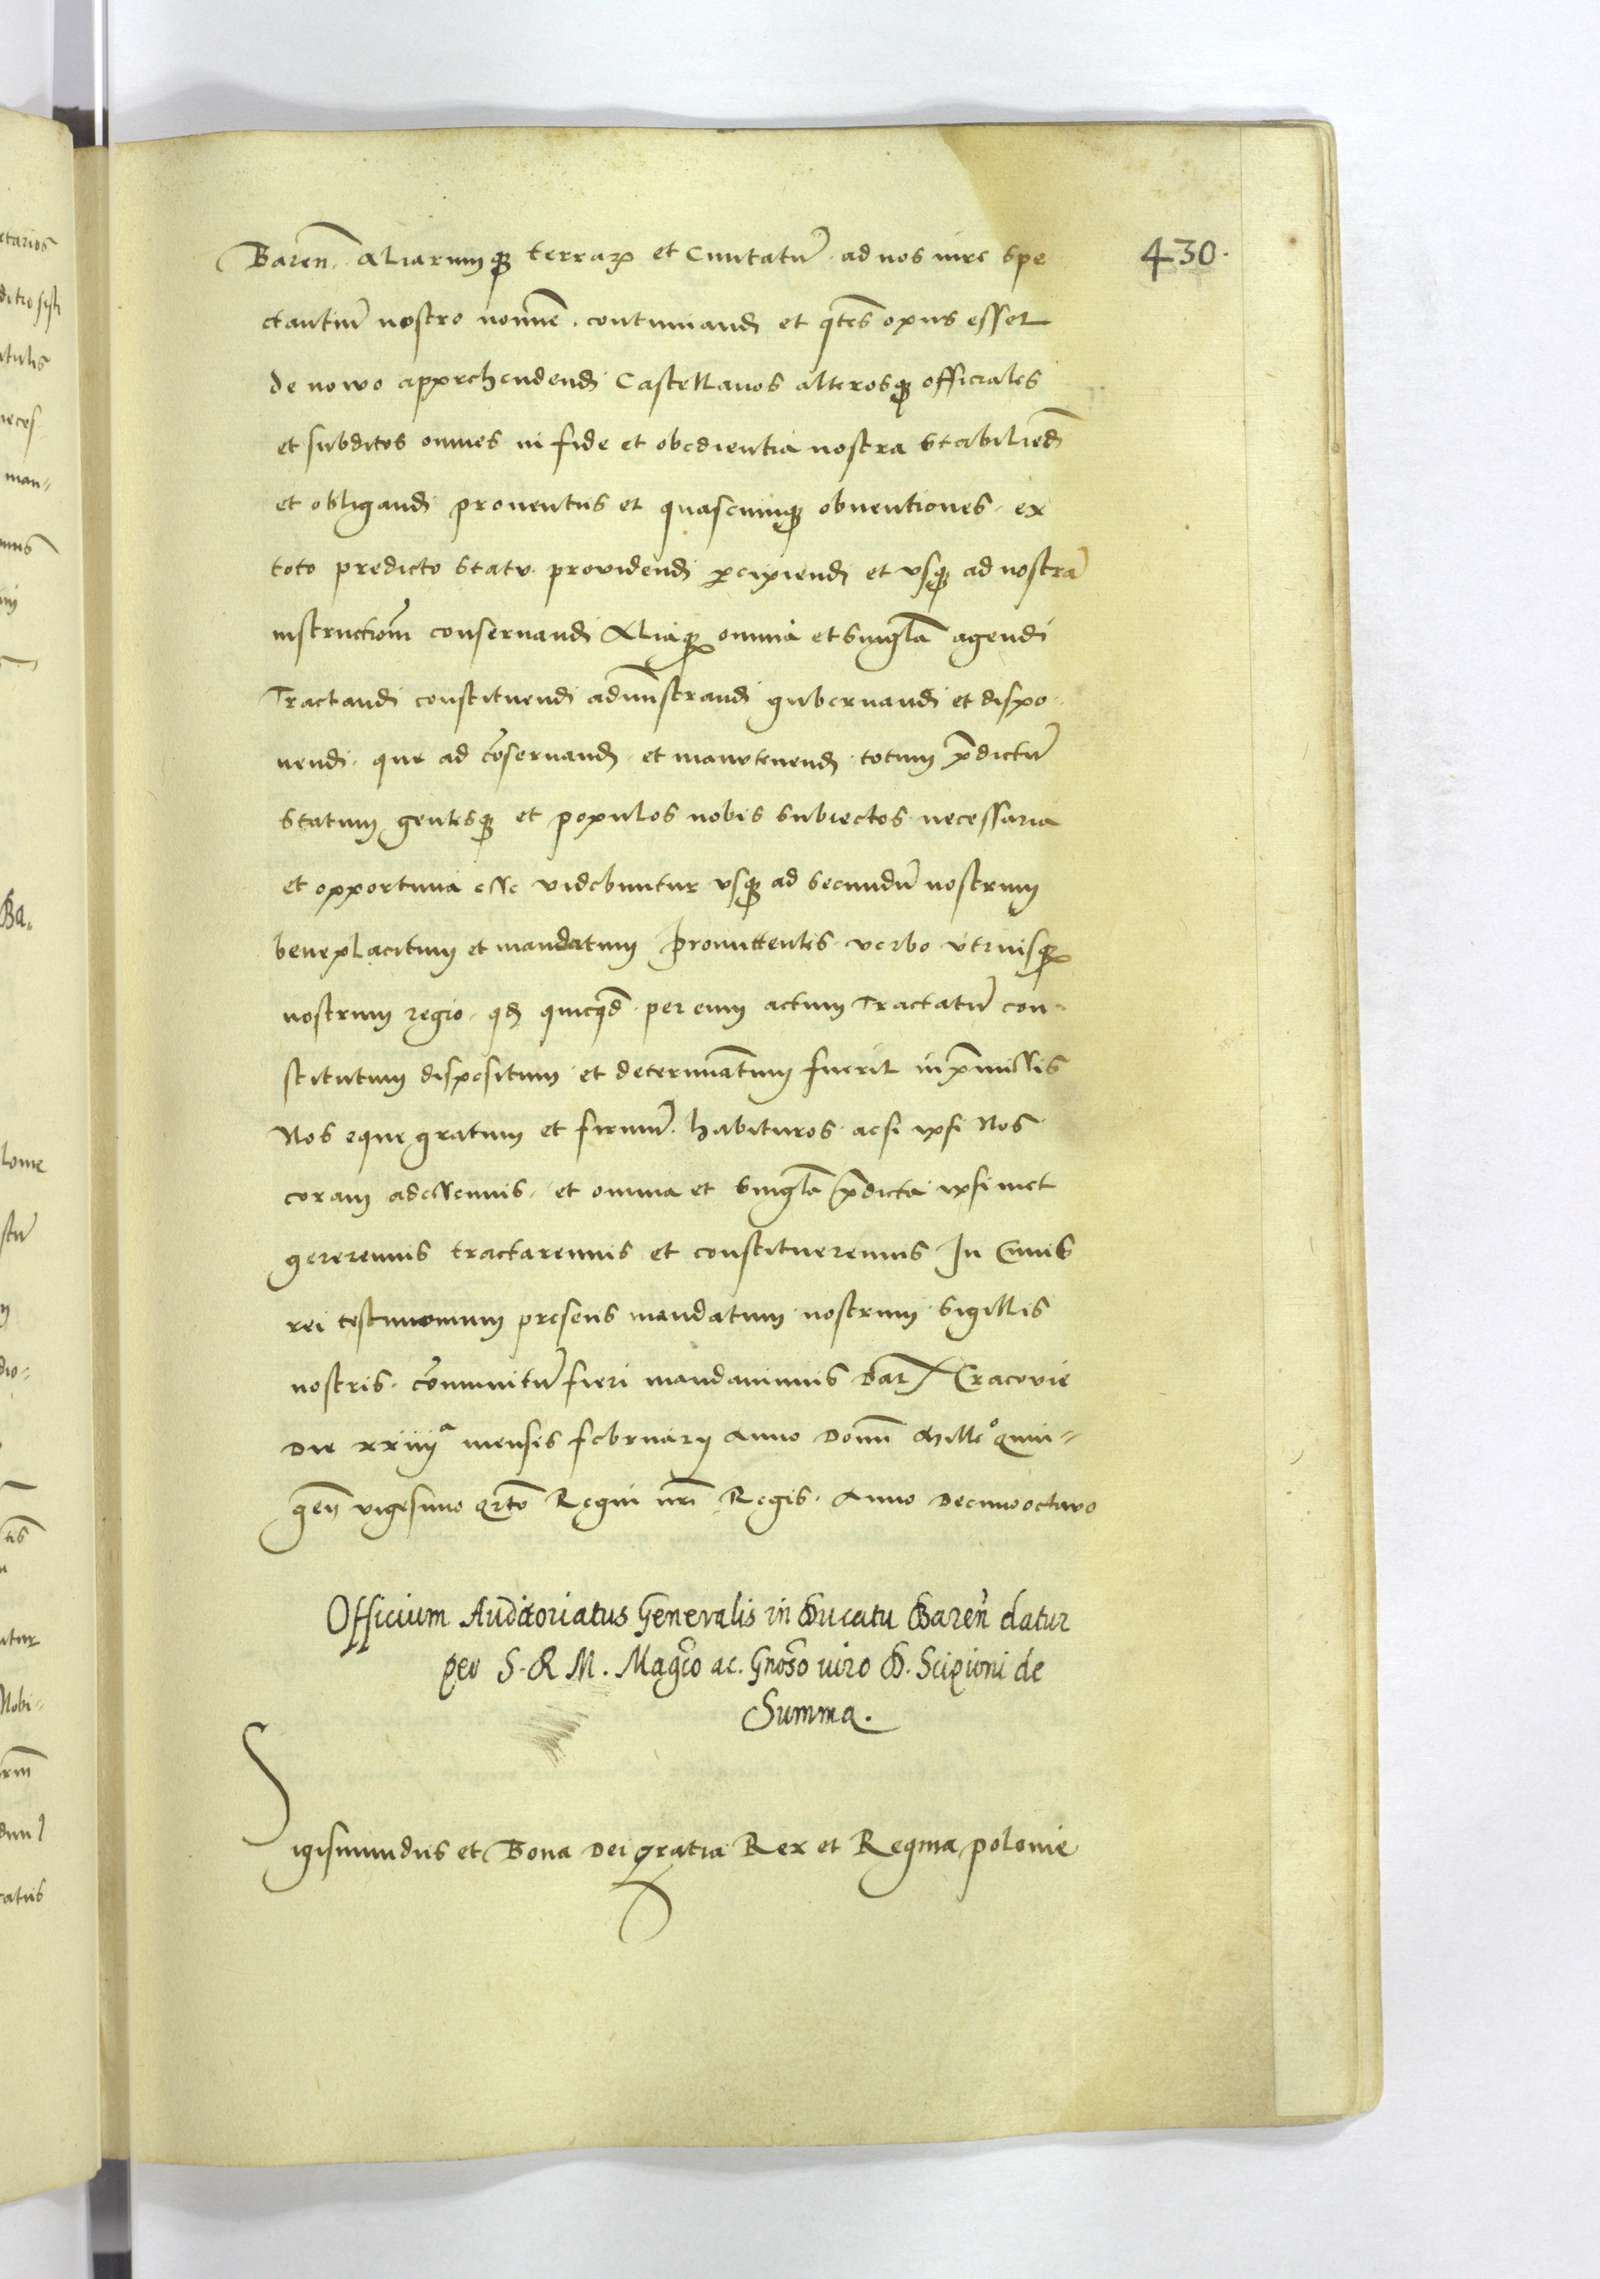 430.
Baren̄. Aliarumqꝫ terraꝝ et Ciuitatū. ad nos iure spe
ctantiū nostro noīne. continuandi et q̄tens opus esset
de nowo apprehendendi Castellanos alterosqꝫ officiales
et subditos omnes in fide et obedientia nostra stabiliendi
et obligandi prouentus et quascumqꝫ obuentiones. ex
toto predicto statu. providendi ꝑcipiendi et vsqꝫ ad nostrā
instructioēm conseruandi Aliaqꝫ omnia et singl̄a agendi
Tractandi constituendi adm̄nstrandi gubernandi et dispo-
nendi. que ad cōseruandꝫ. et manutenendꝫ. totum p̄dictū
statum gentesqꝫ et populos nobis subiectos necessaria
et opportuna esse videbuntur vsqꝫ ad secundū nostrum
beneplacitum et mandatum Promittentes verbo vtriusqꝫ
nostrum regio. qđ quicqđ per eum actum Tractatū con-
stitutum dispositum et determinatum fuerit in p̄missis
Nos eque gratum et firmū. habituros acsi ipsi Nos
coram adessemus. et omnia et singl̄a p̄dicta ipsimet
gereremus tractaremus et constitueremus In Cuius
rei testimonium presens mandatum nostrum sigillis
nostris. cōmunitū fieri mandauimus Dat Cracovie
Die xxiiijª mensis februarij Anno Domī Milleº quin-
gen̄ vigesimo qrto Regni nr̄i Regis. Anno Decimooctavo
Officium Auditoriatus Generalis in Ducatu Baren̄ datur
per S. R M. Magco ac. Gnoso viro D. Scipioni de
Summa.
Sigismundus et Bona Dei gratia Rex et Regina polonie